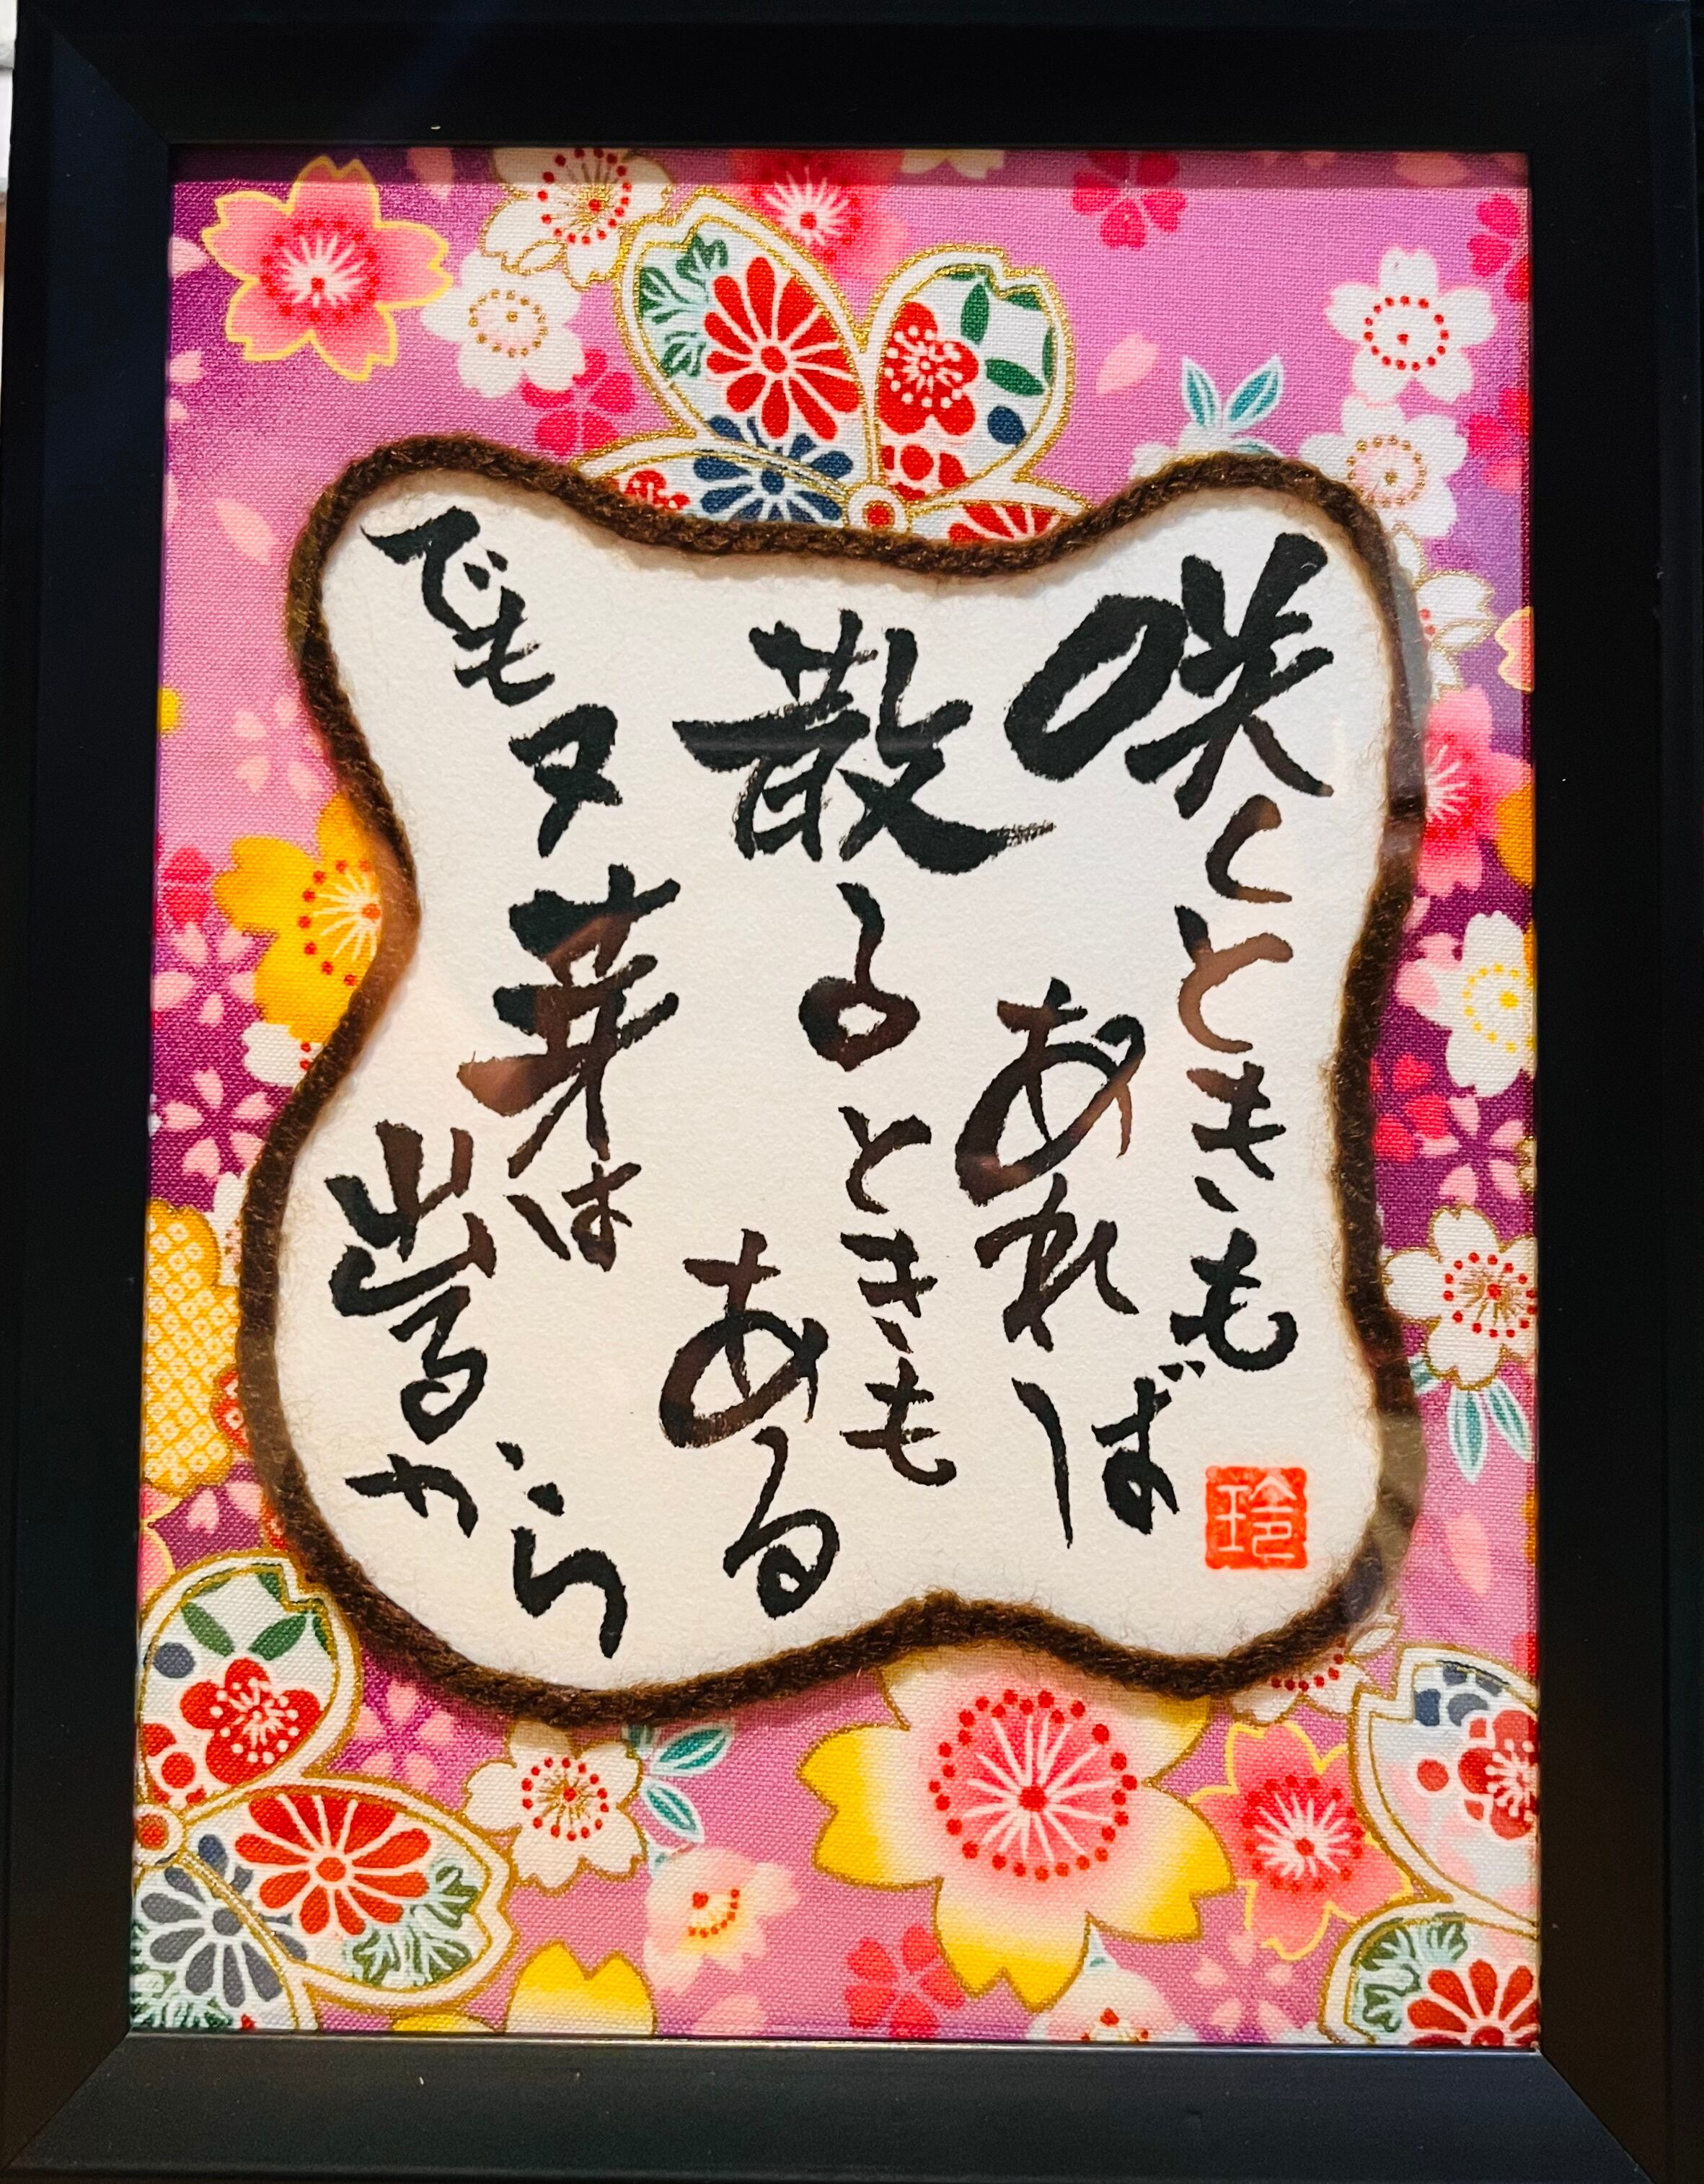 咲くときも
あれば
散るときも
ある
でも又芽は
出るから
玲